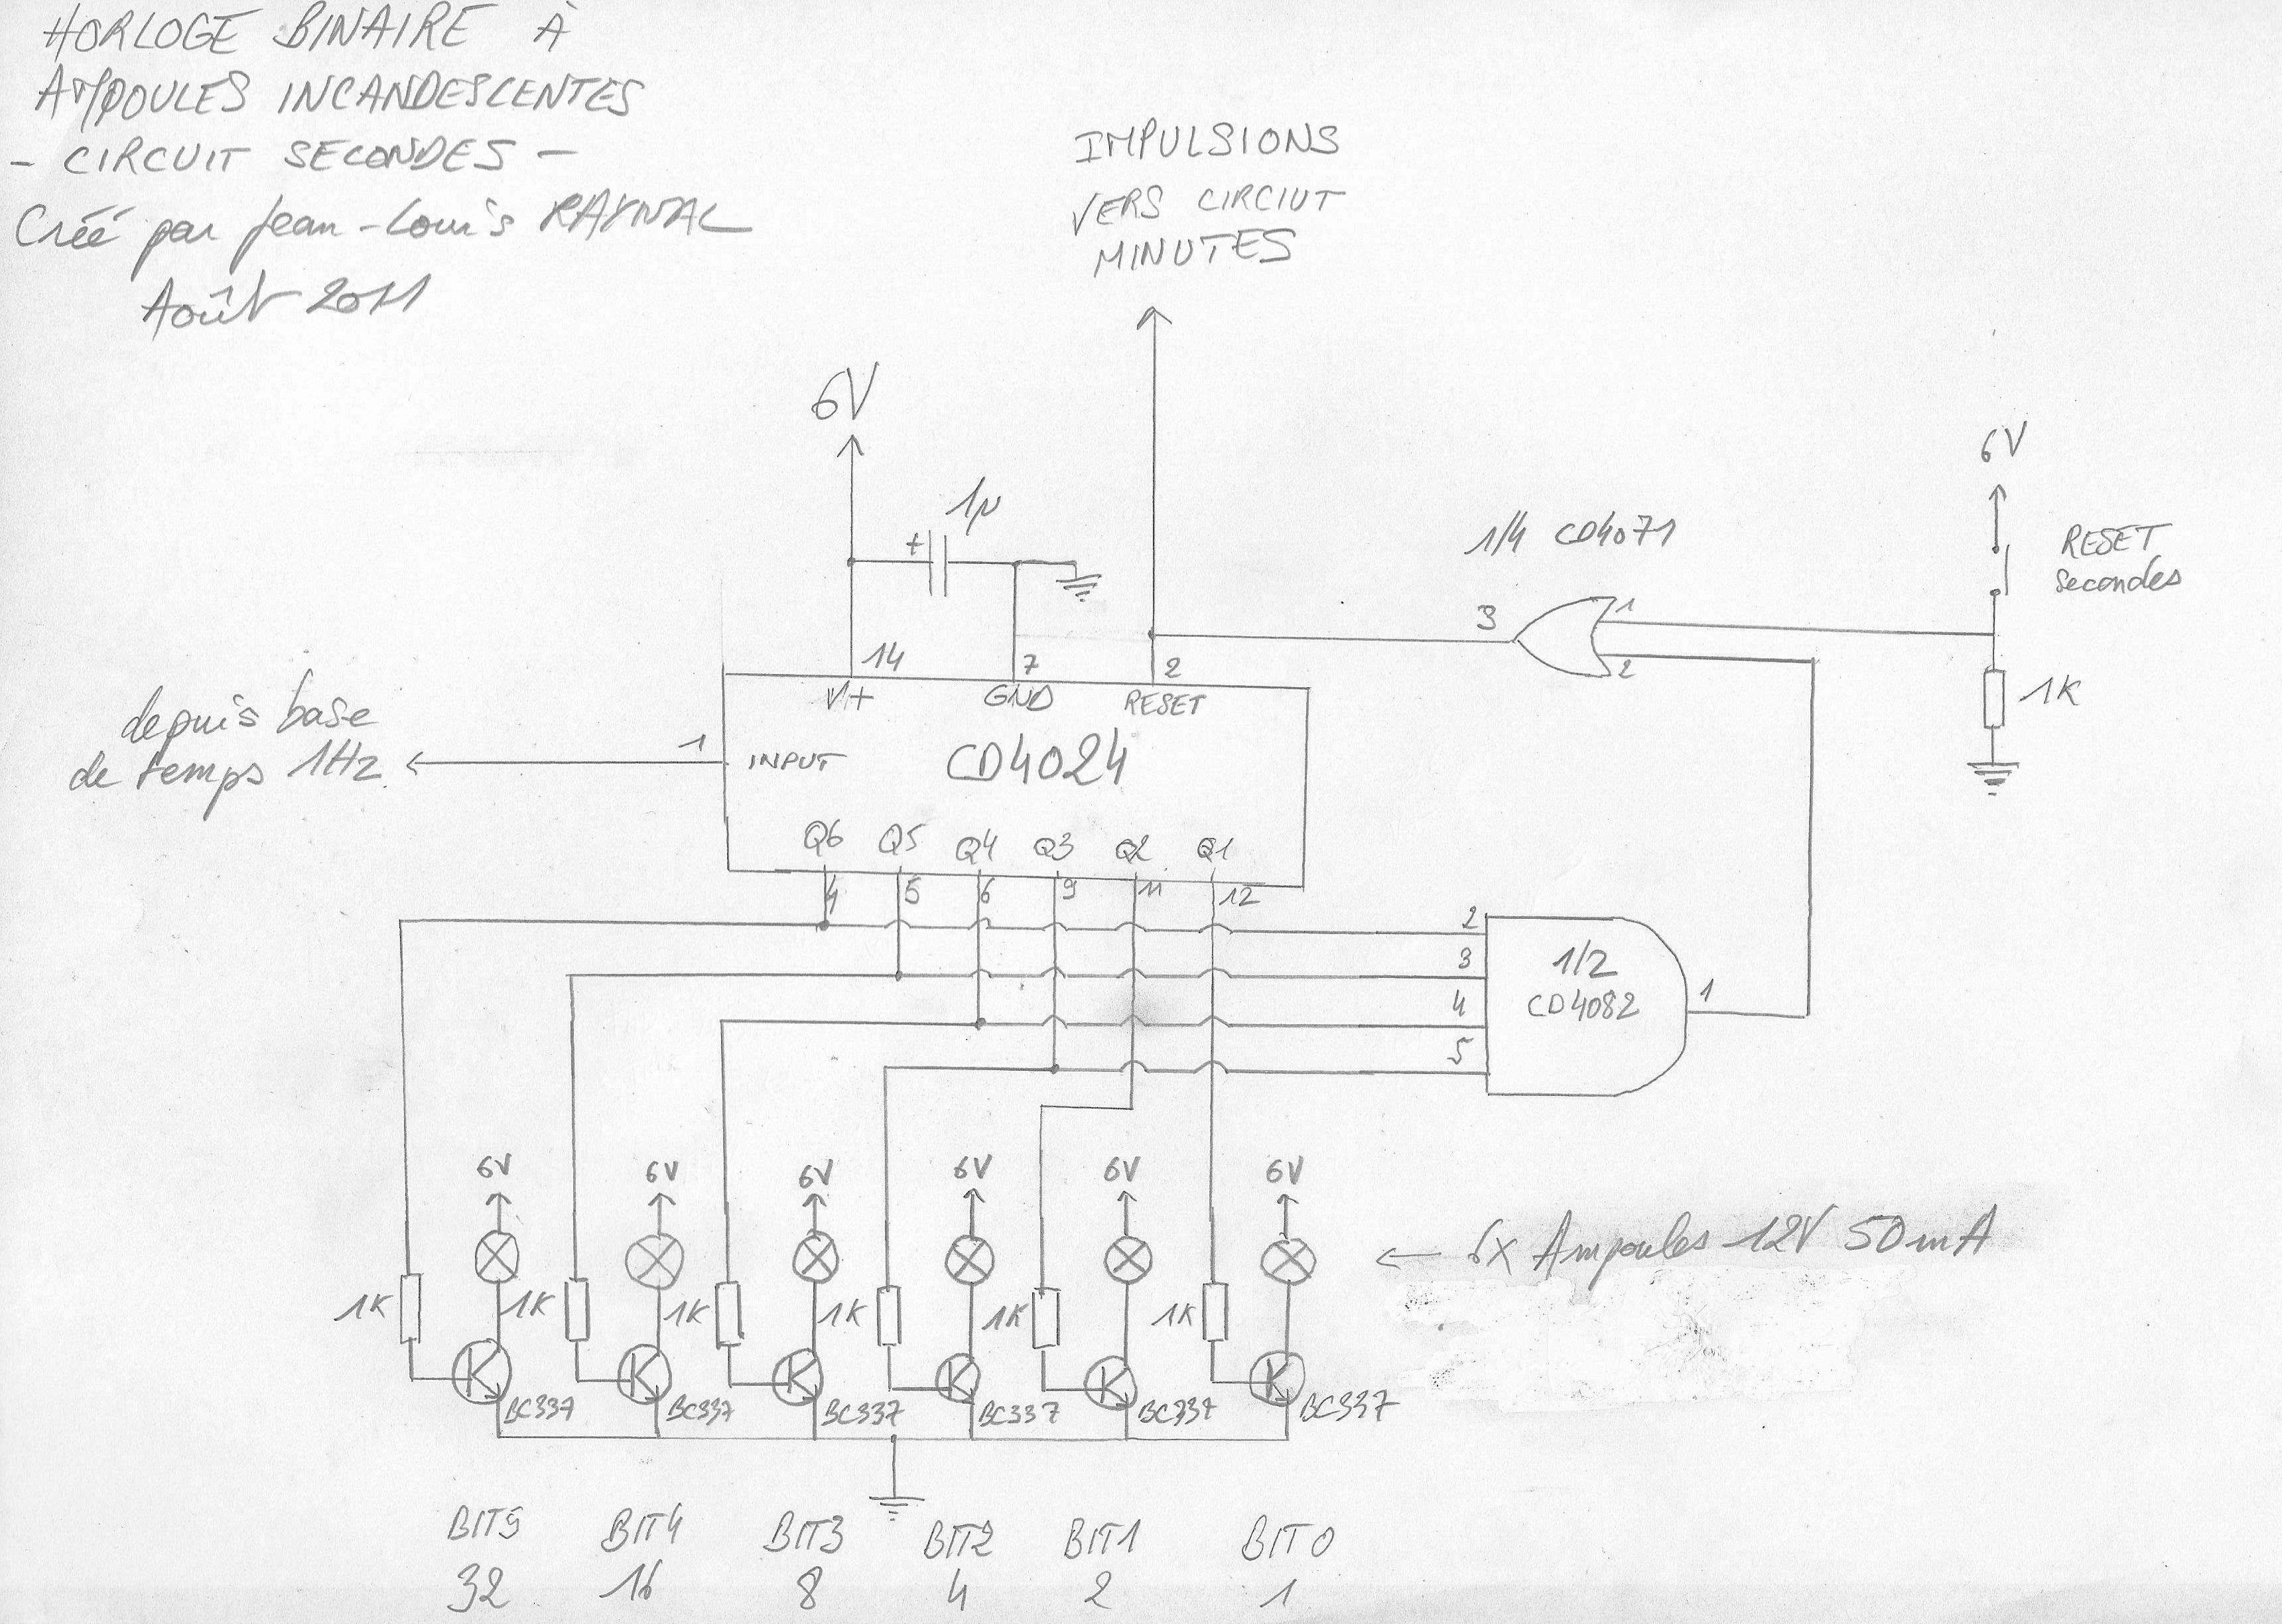 HORLOGE BINAIRE À
AMPOULES INCANDESCENTES
- CIRCUIT SECONDES -
Créé par Jean-Louis RAYNAL
Août 2011
IMPULSIONS
VERS CIRCIUT
MINUTES
6V
1µ
+
1/4 CD4071
6V
RESET
secondes
3
1
2
1K
14
7
2
V+
GND
RESET
depuis base
de temps 1Hz
1
INPUT
CD4024
Q6 Q5 Q4 Q3 Q2 Q1
4 5 6 9 11 12
2
3
4
5
1/2
CD4082
1
6V 6V 6V 6V 6V 6V
← 6x Ampoules 12V 50mA
1K 1K 1K 1K 1K 1K
BC337 BC337 BC337 BC337 BC337 BC337
BIT5 BIT4 BIT3 BIT2 BIT1 BIT0
32 16 8 4 2 1